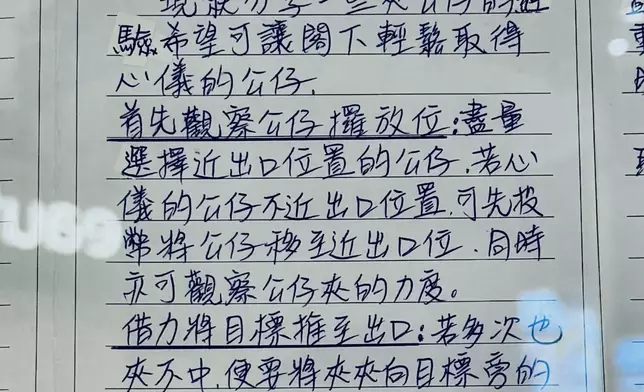 現欲分享一些夾公仔的經
驗希望可讓閣下輕鬆取得
心儀的公仔.
首先觀察公仔擺放位:盡量
選擇近出口位置的公仔.若心
儀的公仔不近出口位置,可先投
幣將公仔移至近出口位.同時
亦可觀察公仔夾的力度。
借力將目標推至出口:若多次也
夾不中,便要將夾夾向目標旁的